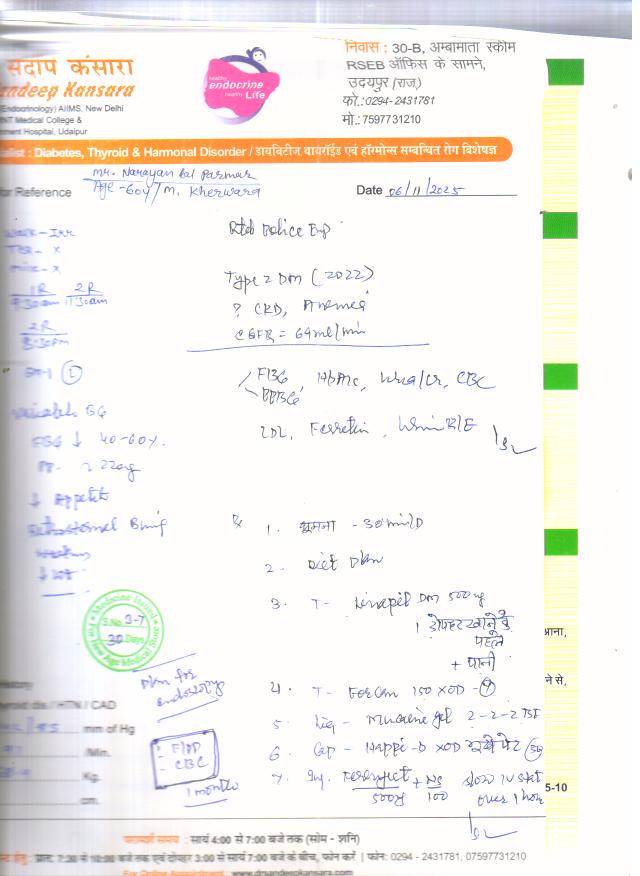 संदीप कंसारा
andeep Kansara
Endocrinology) AIIMS, New Delhi
NT Medical College &
nment Hospital, Udaipur
healthy
endocrine
healthy Life
निवास : 30-B, अम्बामाता स्कीम
RSEB ऑफिस के सामने,
उदयपुर (राज.)
फो.: 0294- 2431781
मो.: 7597731210
alist : Diabetes, Thyroid & Harmonal Disorder / डायबिटीज, थायरॉईड एवं हॉरमोन्स सम्बन्धित रोग विशेषज्ञ
Mr. Narayan lal Parmar
or Reference Age - 60y/M, Kherwara
Date 06/11/2025
Rtd Police
Walk - Irr
Tea - x
Milk - x
Type 2 DM (2022)
1R 2R
9:30am 11:30am
? CKD, Anemia
EGFR = 64ml/min
2R
8:30pm
FBG, HbA1c, Urea/Cr, CBC
PPBG
Variable BG
LDL, Ferretin, Urine R/E
FBG ↓ 40-60%
PP-
↓ Appetite
Rx 1. घूमना - 30 min/D
2. Diet Plan
↓ wt
3. T- Linapil DM 500mg
1 दोपहर खाने के
पहले
+ पानी
Medicine Issued
S.No. 3-7
30 Days
For New Age Medical Store
आना,
Plan for
endoscopy
4. T- 150 x OD
ने से,
History
roid dis / HTN / CAD
5. Liq - Mucaine gel 2-2-2 TSF
mm of Hg
6. Cap - Happi-D x OD
/Min.
F/PP
- CBC
Kg.
7. Inj. + NS slow IV
500mg 100 over 1 hour
5-10
1 months
cm.
परामर्श समय : सायं 4:00 से 7:00 बजे तक (सोम - शनि)
हेतु : प्रात: 7:30 से 10:00 बजे तक एवं दोपहर 3:00 से सायं 7:00 बजे के बीच, फोन करें | फोन: 0294 - 2431781, 07597731210
For Online Appointment : www.drsandeepkansara.com